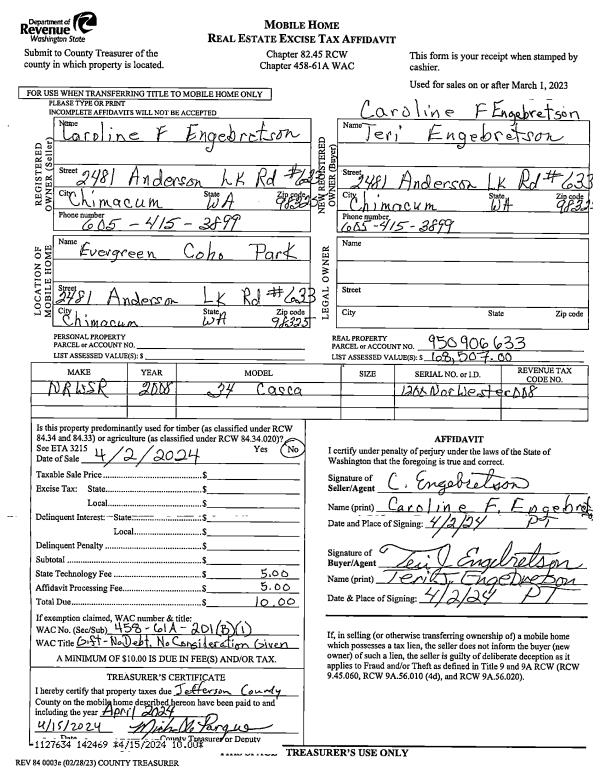 Department of
Revenue
Washington State
MOBILE HOME
REAL ESTATE EXCISE TAX AFFIDAVIT
Submit to County Treasurer of the
county in which property is located.
Chapter 82.45 RCW
Chapter 458-61A WAC
This form is your receipt when stamped by
cashier.
Used for sales on or after March 1, 2023
FOR USE WHEN TRANSFERRING TITLE TO MOBILE HOME ONLY
PLEASE TYPE OR PRINT
INCOMPLETE AFFIDAVITS WILL NOT BE ACCEPTED
Caroline F Engebretson
REGISTERED
OWNER (Seller)
Name
Caroline F Engebretson
Street
2481 Anderson Lk Rd #633
City
Chimacum
State
WA
Zip code
98325
Phone number
605-415-3899
NEW REGISTERED
OWNER (Buyer)
Name
Teri Engebretson
Street
2481 Anderson Lk Rd #633
City
Chimacum
State
WA
Zip code
98325
Phone number
605-415-3899
LOCATION OF
MOBILE HOME
Name
Evergreen Coho Park
Street
2481 Anderson Lk Rd #633
City
Chimacum
State
WA
Zip code
98325
LEGAL OWNER
Name
Street
City
State
Zip code
PERSONAL PROPERTY
PARCEL or ACCOUNT NO.
LIST ASSESSED VALUE(S): $
REAL PROPERTY
PARCEL or ACCOUNT NO. 950906633
LIST ASSESSED VALUE(S): $ 168,507.00
MAKE YEAR MODEL SIZE SERIAL NO. or I.D. REVENUE TAX
CODE NO.
NRWSR 2008 34 Casca
Is this property predominantly used for timber (as classified under RCW
84.34 and 84.33) or agriculture (as classified under RCW 84.34.020)?
See ETA 3215 Yes No
Date of Sale 4/2/2024
Taxable Sale Price $
Excise Tax: State $
Local $
Delinquent Interest: State $
Local $
Delinquent Penalty $
Subtotal $
State Technology Fee $ 5.00
Affidavit Processing Fee $ 5.00
Total Due $ 10.00
If exemption claimed, WAC number & title:
WAC No. (Sec/Sub) 458-61A-201(B)(1)
WAC Title Gift-No Debt, No Consideration Given
A MINIMUM OF $10.00 IS DUE IN FEE(S) AND/OR TAX.
TREASURER'S CERTIFICATE
I hereby certify that property taxes due Jefferson County
County on the mobile home described hereon have been paid to and
including the year April 2024
4/15/2024
Date County Treasurer or Deputy
-1127634 142469 *4/15/2024 10.00*
AFFIDAVIT
I certify under penalty of perjury under the laws of the State of
Washington that the foregoing is true and correct.
Signature of
Seller/Agent C. Engebretson
Name (print) Caroline F. Engebret
Date and Place of Signing: 4/2/24 PT
Signature of
Buyer/Agent Teri J Engebretson
Name (print) Teri J. Engebretson
Date & Place of Signing: 4/2/24 PT
If, in selling (or otherwise transferring ownership of) a mobile home
which possesses a tax lien, the seller does not inform the buyer (new
owner) of such a lien, the seller is guilty of deliberate deception as it
applies to Fraud and/or Theft as defined in Title 9 and 9A RCW (RCW
9.45.060, RCW 9A.56.010 (4d), and RCW 9A.56.020).
TREASURER'S USE ONLY
REV 84 0003e (02/28/23) COUNTY TREASURER